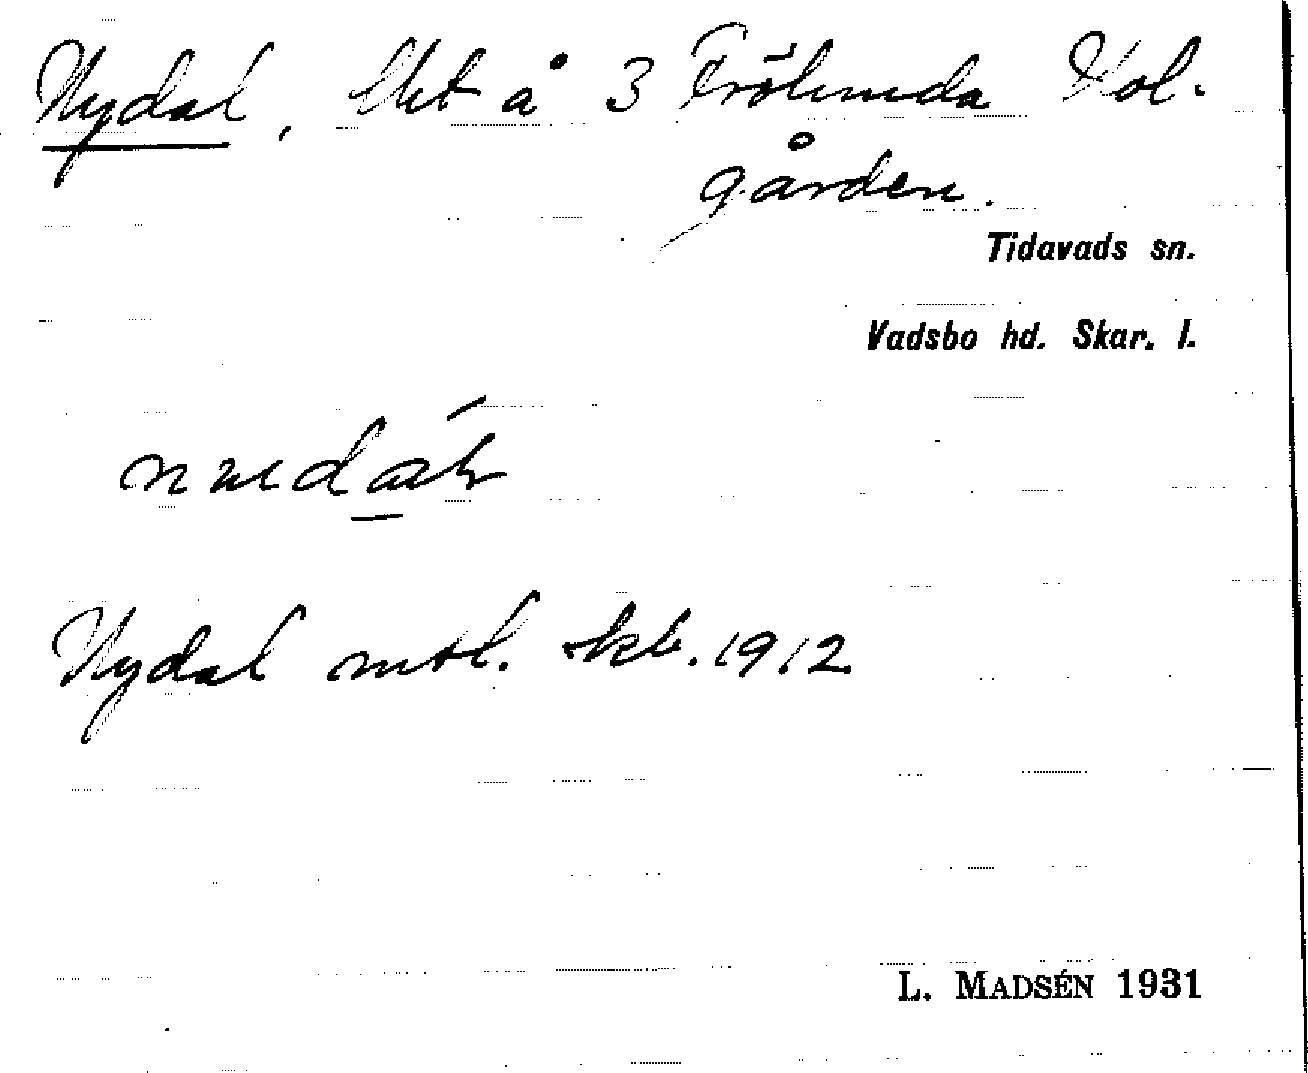 Nydal, lht å 3 Frölunda Kol-
gården.
Tidavads sn.
Vadsbo hd. Skar. l.
Nydal mtl. skb. 1912
L. MADSÉN 1931